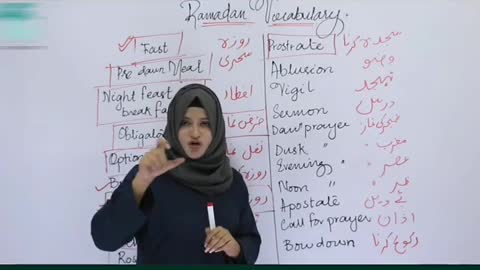 Ramadan Vocabulary.
Fast روزہ
Pre dawn Meal سحری
Night feast افطار
break fa
Obligato فرض
Option نفل
روزہ
Prostrate سجدہ کرنا
Ablusion وضو
Vigil تہجد
Sermon درس
Dawn prayer فجر کی نماز
Dusk " مغرب
Evening " عصر
Noon " ظہر
Apostate بے دین
Call for prayer اذان
Bow down رکوع کرنا